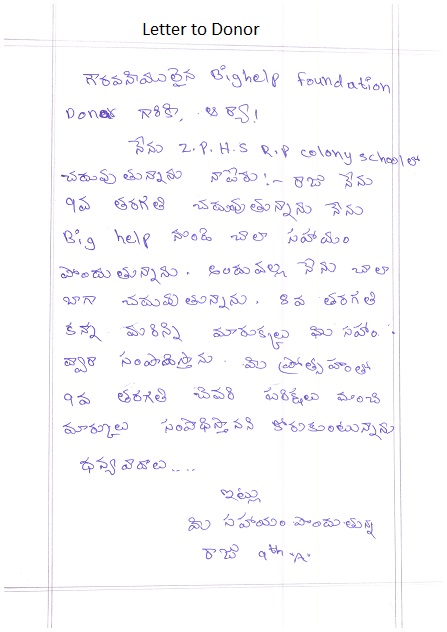 Letter to Donor
గౌరవనీయులైన Bighelp Foundation
Donor గారికి, ఆర్యా!
నేను Z.P.H.S R.P colony school లో
చదువుతున్నాను నాపేరు!~ రాజు నేను
9వ తరగతి చదువుతున్నాను నేను
Big help నుండి చాలా సహాయం
పొందుతున్నాను. అందువల్ల నేను చాలా
బాగా చదువుతున్నాను. 8వ తరగతి
కన్నా మరిన్ని మారుక్కలు మి సహాం
ద్వారా సంపాదిస్తాను. మి ప్రోత్సహంతో
9వ తరగతి చివరి పరిక్షలు మంచి
మార్కులు సంపాధిస్తానని కోరుకుంటున్నాను
ధన్యవాదాలు....
ఇట్లు
మి సహాయం పొందుతున్న
రాజు 9th "A"